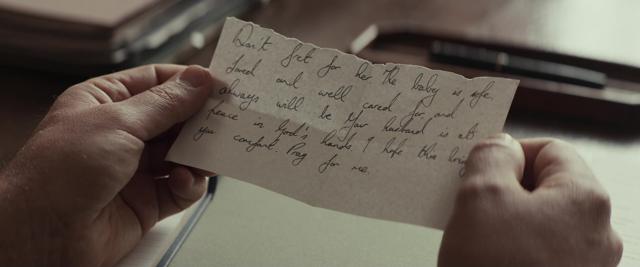 Don't fret for her the baby is safe.
Loved and well cared for, and
always will be Your husband is at
peace in God's hands. I hope this brings
you comfort. Pray for me.